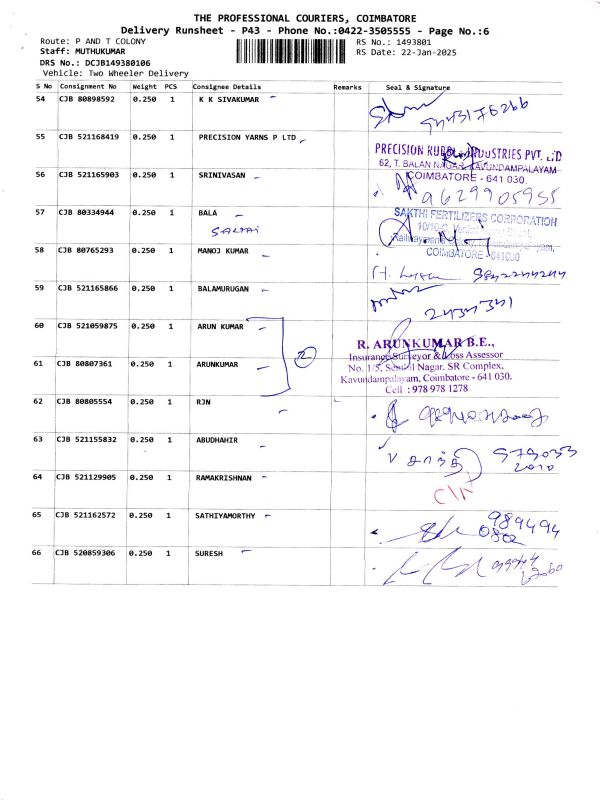 THE PROFESSIONAL COURIERS, COIMBATORE
Delivery Runsheet - P43 - Phone No.:0422-3505555 - Page No.:6
Route: P AND T COLONY
RS No.: 1493801
Staff: MUTHUKUMAR
RS Date: 22-Jan-2025
DRS No.: DCJB149380106
Vehicle: Two Wheeler Delivery
S No Consignment No Weight PCS Consignee Details Remarks Seal & Signature
54 CJB 80898592 0.250 1 K K SIVAKUMAR
55 CJB 521168419 0.250 1 PRECISION YARNS P LTD
PRECISION RUBB INDUSTRIES PVT. LTD
62, T. BALAN NAGAR, KAVUNDAMPALAYAM
COIMBATORE - 641 030.
56 CJB 521165903 0.250 1 SRINIVASAN
9629905955
57 CJB 80334944 0.250 1 BALA
SAKTHI FERTILIZERS CORPORATION
COIMBATORE - 641030
58 CJB 80765293 0.250 1 MANOJ KUMAR
59 CJB 521165866 0.250 1 BALAMURUGAN
60 CJB 521059875 0.250 1 ARUN KUMAR
2
R. ARUNKUMAR B.E.,
Insurance Surveyor & Loss Assessor
No. 1/5, Senthil Nagar, SR Complex,
Kavundampalayam, Coimbatore - 641 030.
Cell : 978 978 1278
61 CJB 80807361 0.250 1 ARUNKUMAR
62 CJB 80805554 0.250 1 RJN
63 CJB 521155832 0.250 1 ABUDHAHIR
64 CJB 521129905 0.250 1 RAMAKRISHNAN
65 CJB 521162572 0.250 1 SATHIYAMORTHY
989494
0802
66 CJB 520859306 0.250 1 SURESH